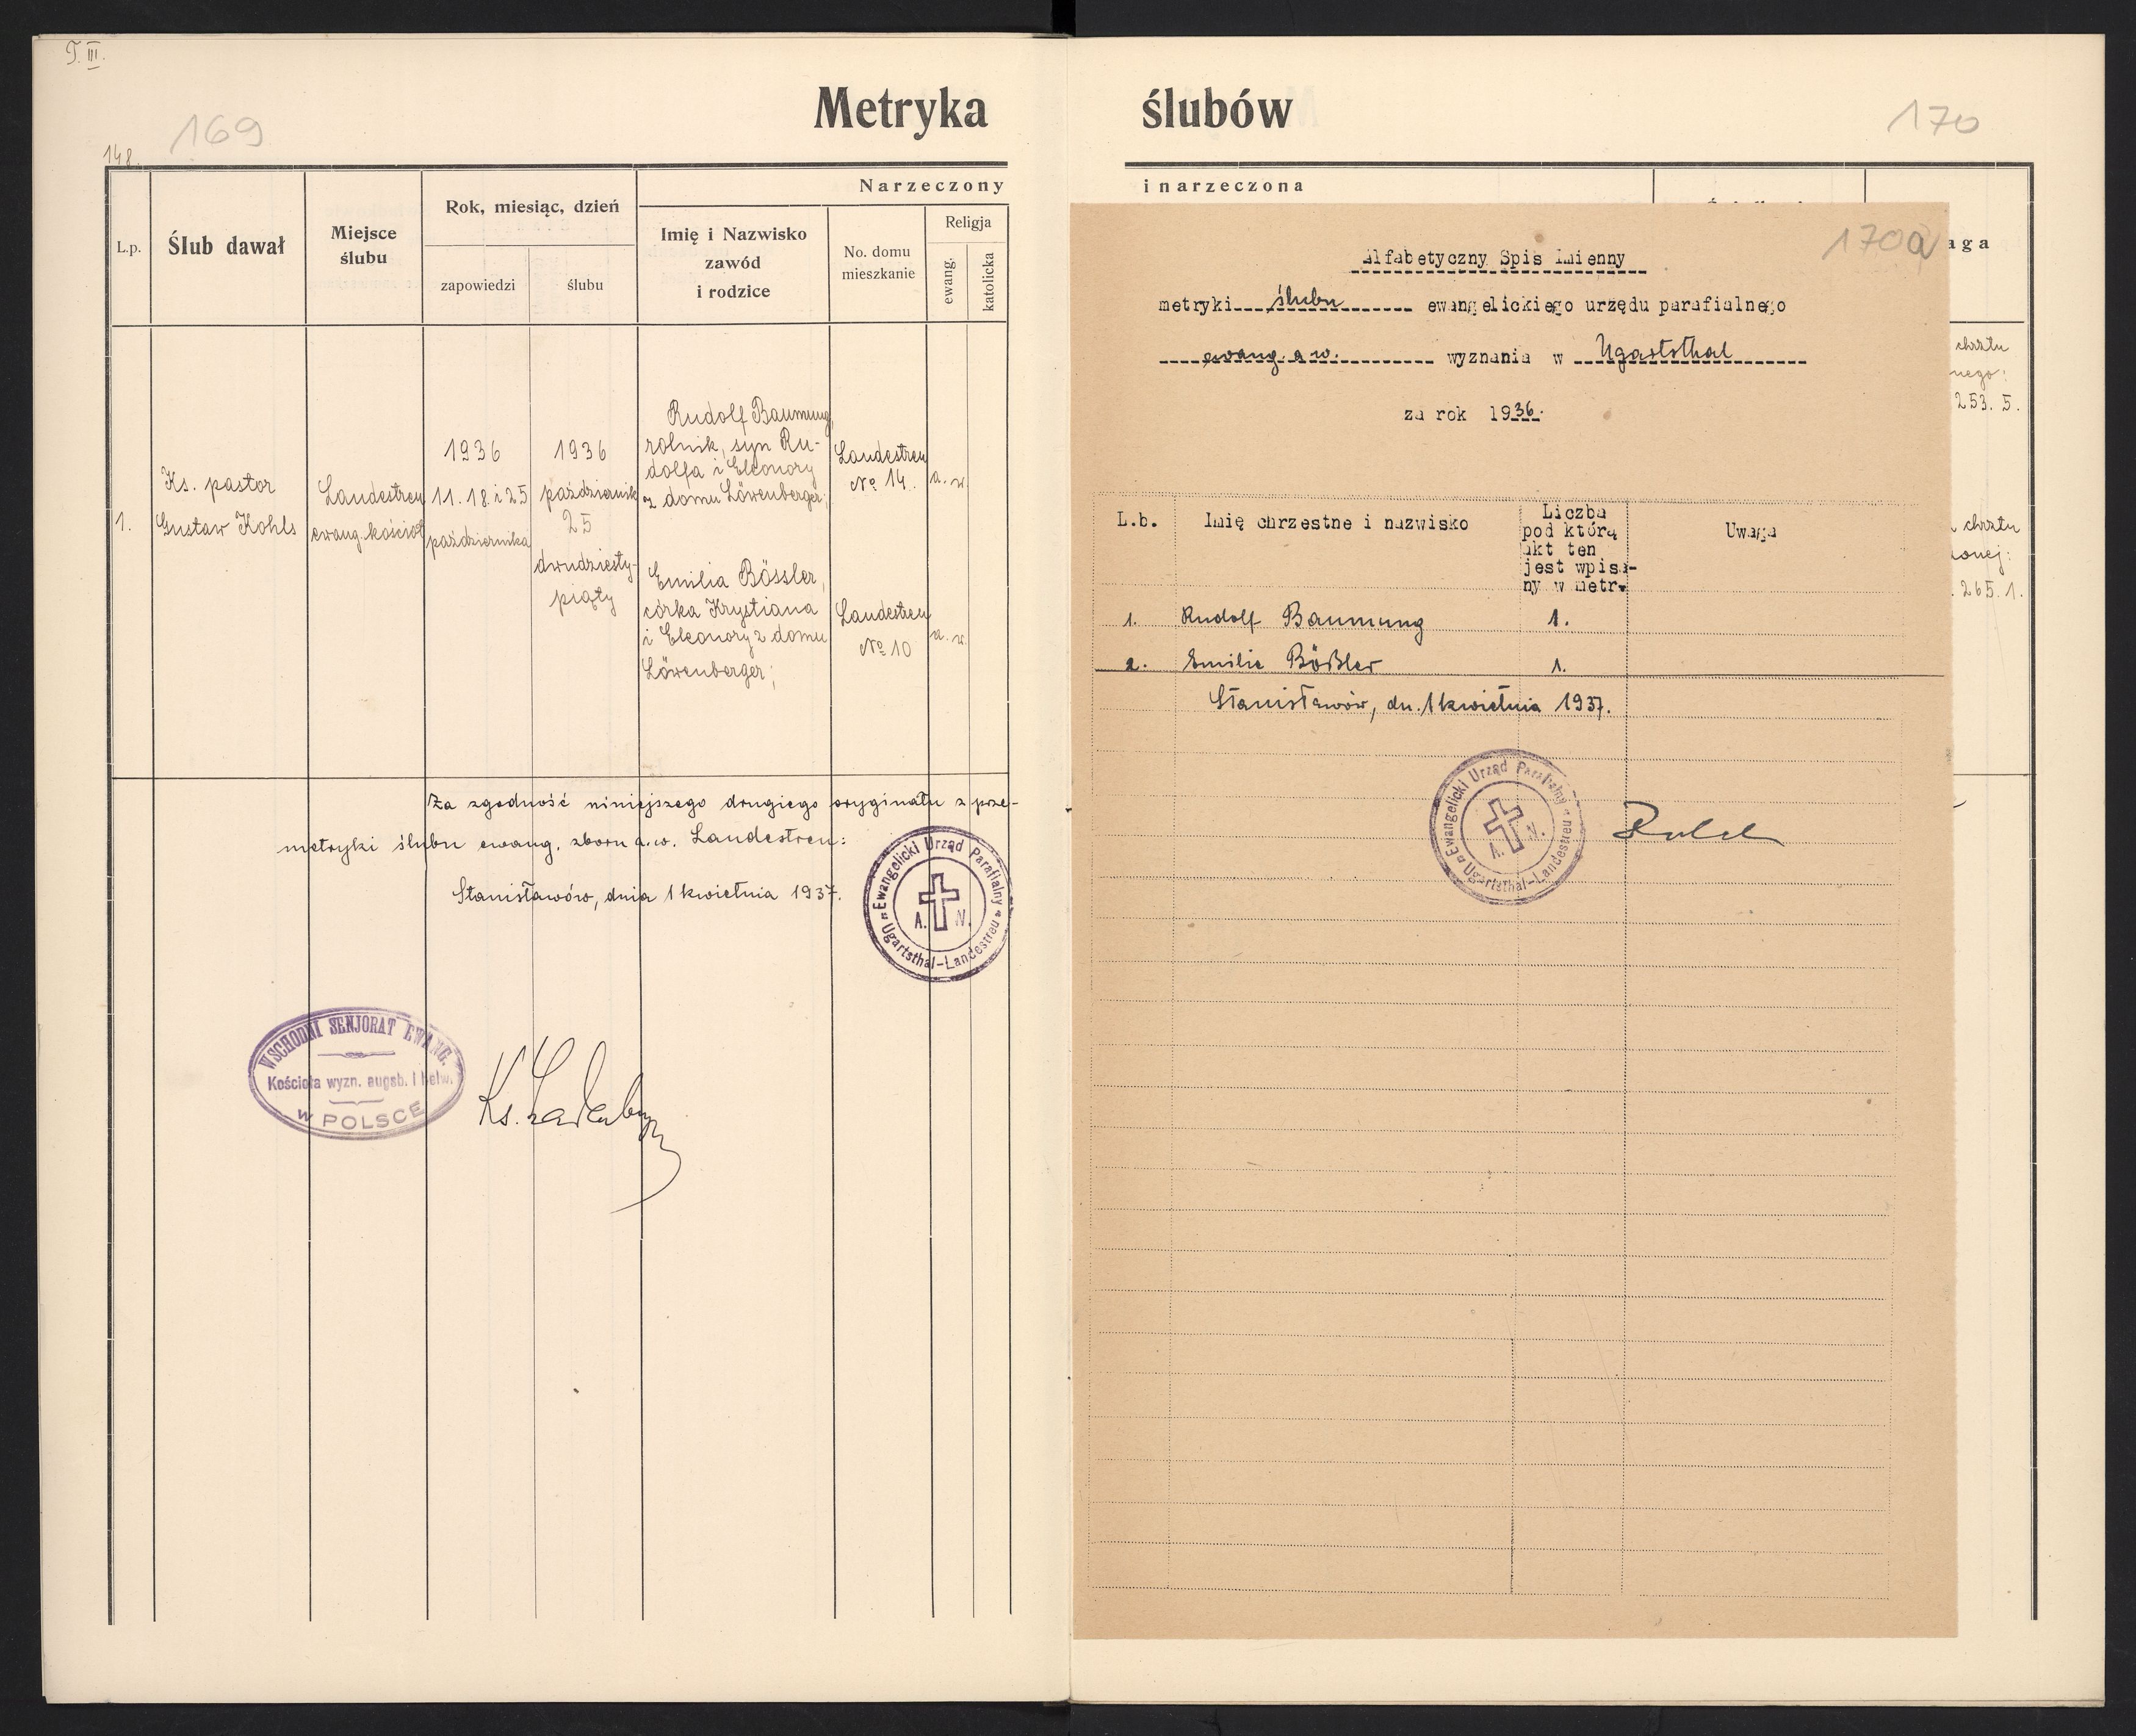 T. III.
169
148.
Metryka
L.p.
Ślub dawał
Miejsce
ślubu
Rok, miesiąc, dzień
zapowiedzi
ślubu
Narzeczony
Imię i Nazwisko
zawód
i rodzice
No. domu
mieszkanie
Religja
ewang.
katolicka
1.
Ks. pastor
Gustaw Kohls
Landestreu
ewang. kościół
1936
11. 18. i 25
października
1936
październik
25
dwudziesty-
piąty
Rudolf Baumung,
rolnik, syn Ru-
dolfa i Eleonory
z domu Löwenberger;
Landestreu
No 14.
a. w.
Emilia Bössler,
córka Krystiana
i Eleonory z domu
Löwenberger;
Landestreu
No 10
a. w.
Za zgodność niniejszego drugiego oryginału z prze-
metryki ślubu ewang. zboru a.w. Landestreu:
Stanisławów, dnia 1 kwietnia 1937.
Ewangelicki Urząd Parafialny
Ugartsthal-Landestreu
A. N.
WSCHODNI SENJORAT EWANG.
Kościoła wyzn. augsb. i helw.
w POLSCE
Ks.
ślubów
170
i narzeczona
aga
chrztu
nego:
253. 5.
chrztu
onej:
265. 1.
170a
Alfabetyczny Spis Imienny
metryki ślubu ewangelickiego urzędu parafialnego
ewang. a. w. wyznania w Ugartsthal
za rok 1936.
L.b.
Imię chrzestne i nazwisko
Liczba
pod którą
akt ten
jest wpisa-
ny w metr.
Uwaga
1. Rudolf Baumung 1.
2. Emilie Bößler 1.
Stanisławów, dn. 1 kwietnia 1937.
Ewangelicki Urząd Parafialny
Ugartsthal-Landestreu
A. N.